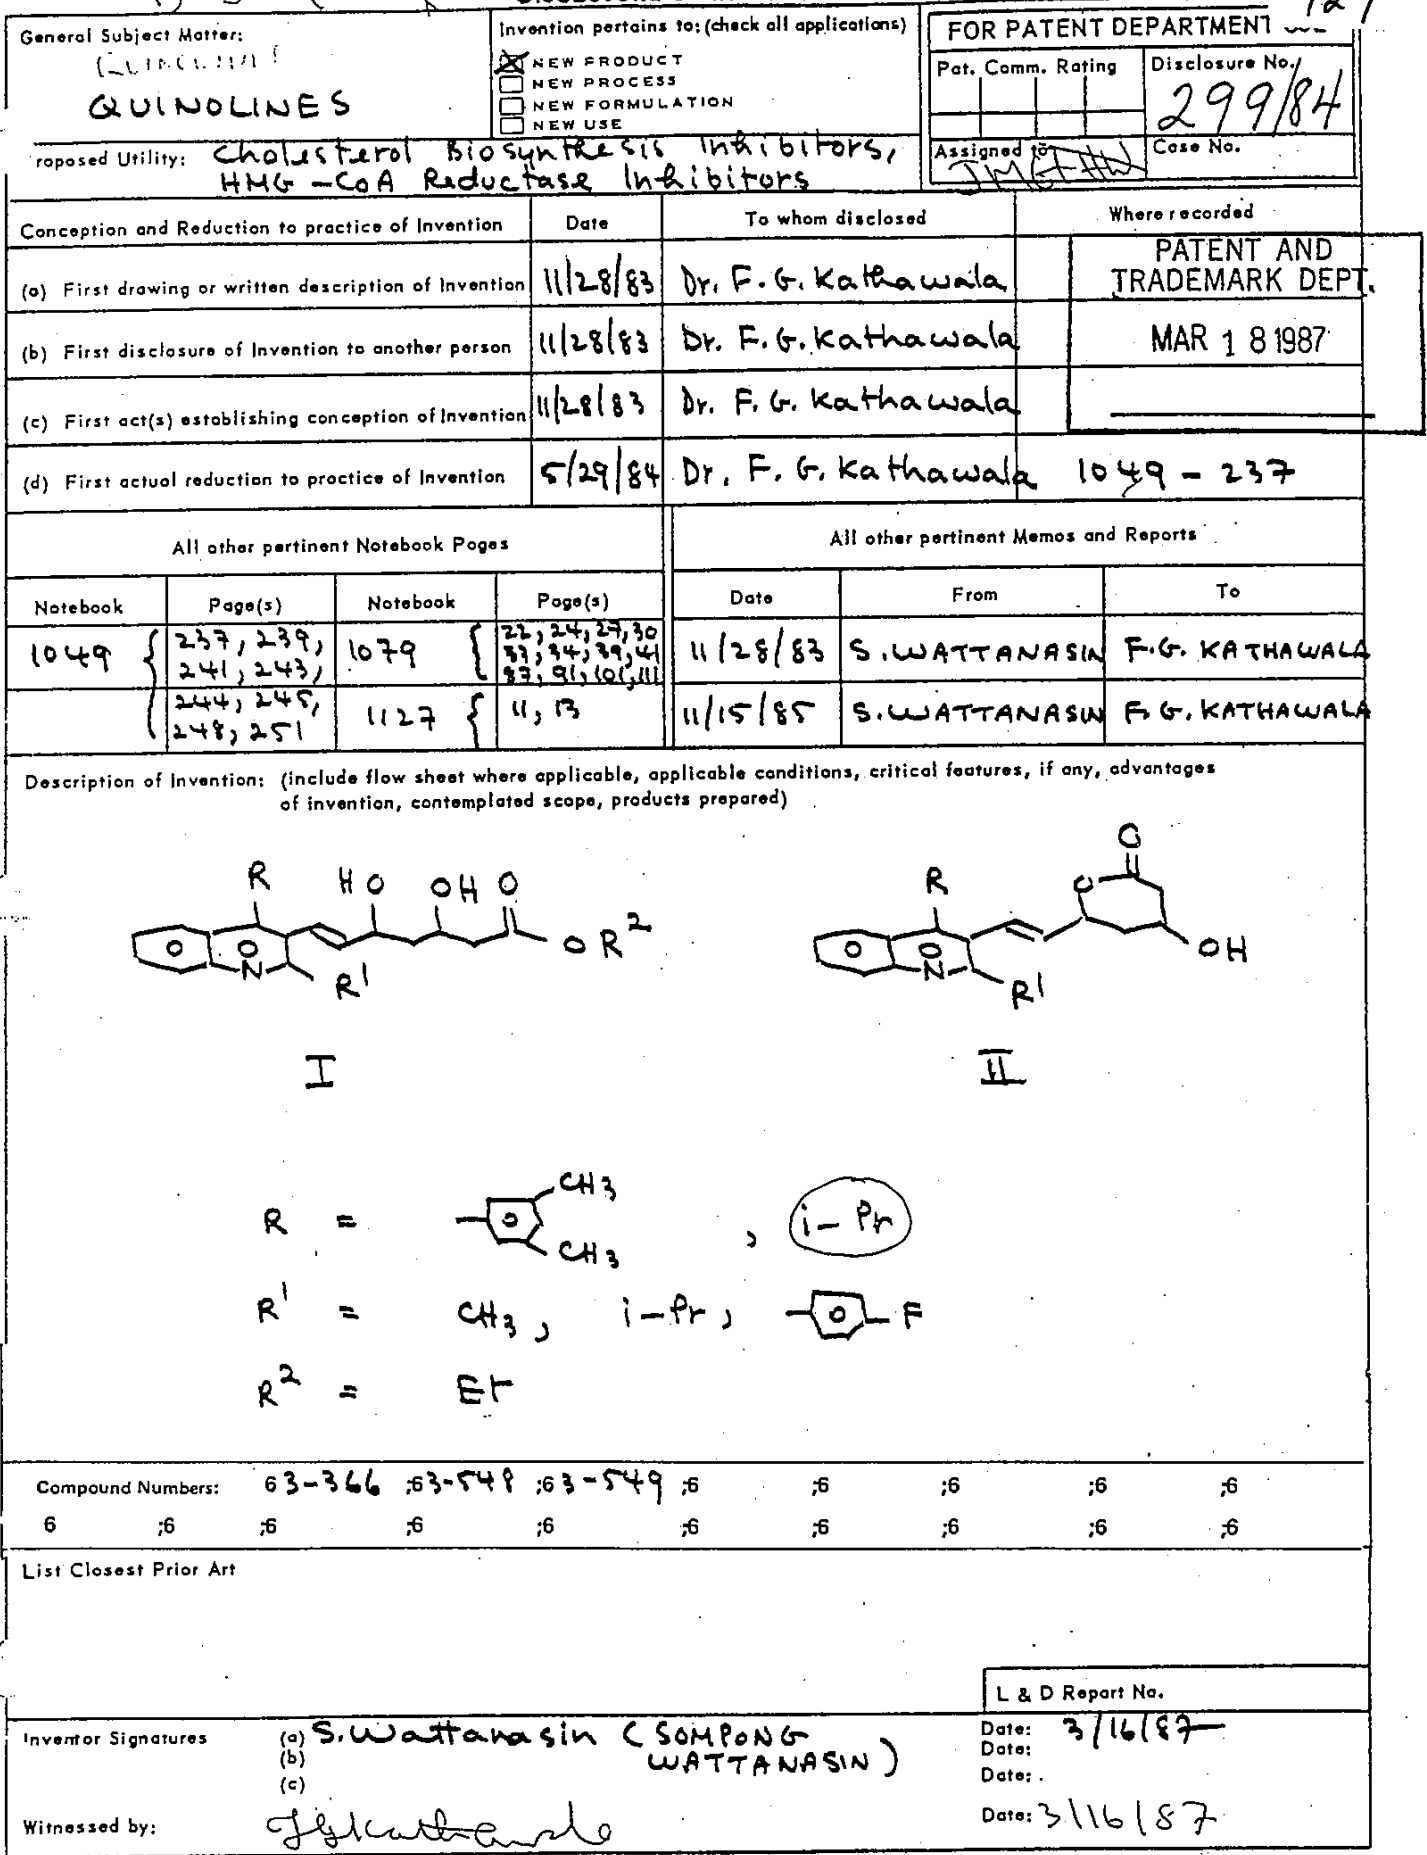 General Subject Matter:
QUINOLINES
Invention pertains to: (check all applications)
NEW PRODUCT
NEW PROCESS
NEW FORMULATION
NEW USE
FOR PATENT DEPARTMENT
Pat. Comm. Rating
Disclosure No.
299/84
Assigned to
Case No.
roposed Utility: Cholesterol Biosynthesis Inhibitors,
HMG-CoA Reductase Inhibitors
Conception and Reduction to practice of Invention Date To whom disclosed Where recorded
(a) First drawing or written description of Invention 11/28/83 Dr. F. G. Kathawala
(b) First disclosure of Invention to another person 11/28/83 Dr. F. G. Kathawala
(c) First act(s) establishing conception of Invention 11/28/83 Dr. F. G. Kathawala
(d) First actual reduction to practice of Invention 5/29/84 Dr. F. G. Kathawala 1049 - 237
PATENT AND
TRADEMARK DEPT.
MAR 18 1987
All other pertinent Notebook Pages
All other pertinent Memos and Reports
Notebook Page(s) Notebook Page(s) Date From To
1049 237, 239, 1079 22, 24, 27, 30
241, 243, 33, 34, 39, 41
87, 91, 101, 111
244, 245, 1127 11, 13
248, 251
11/28/83 S. WATTANASIN F. G. KATHAWALA
11/15/85 S. WATTANASIN F. G. KATHAWALA
Description of Invention: (include flow sheet where applicable, applicable conditions, critical features, if any, advantages
of invention, contemplated scope, products prepared)
R HO OH O
O O N R¹ OR²
I
R O O
O O N R¹ OH
II
R = O CH3 CH3 , i-Pr
R¹ = CH3, i-Pr, O F
R² = Et
Compound Numbers: 63-366 ;63-548 ;63-549 ;6 ;6 ;6 ;6 ;6
6 ;6 ;6 ;6 ;6 ;6 ;6 ;6 ;6 ;6
List Closest Prior Art
L & D Report No.
Inventor Signatures (a) S. Wattanasin (SOMPONG Date: 3/16/87
(b) WATTANASIN) Date:
(c) Date:
Witnessed by: FGKathawala Date: 3/16/87